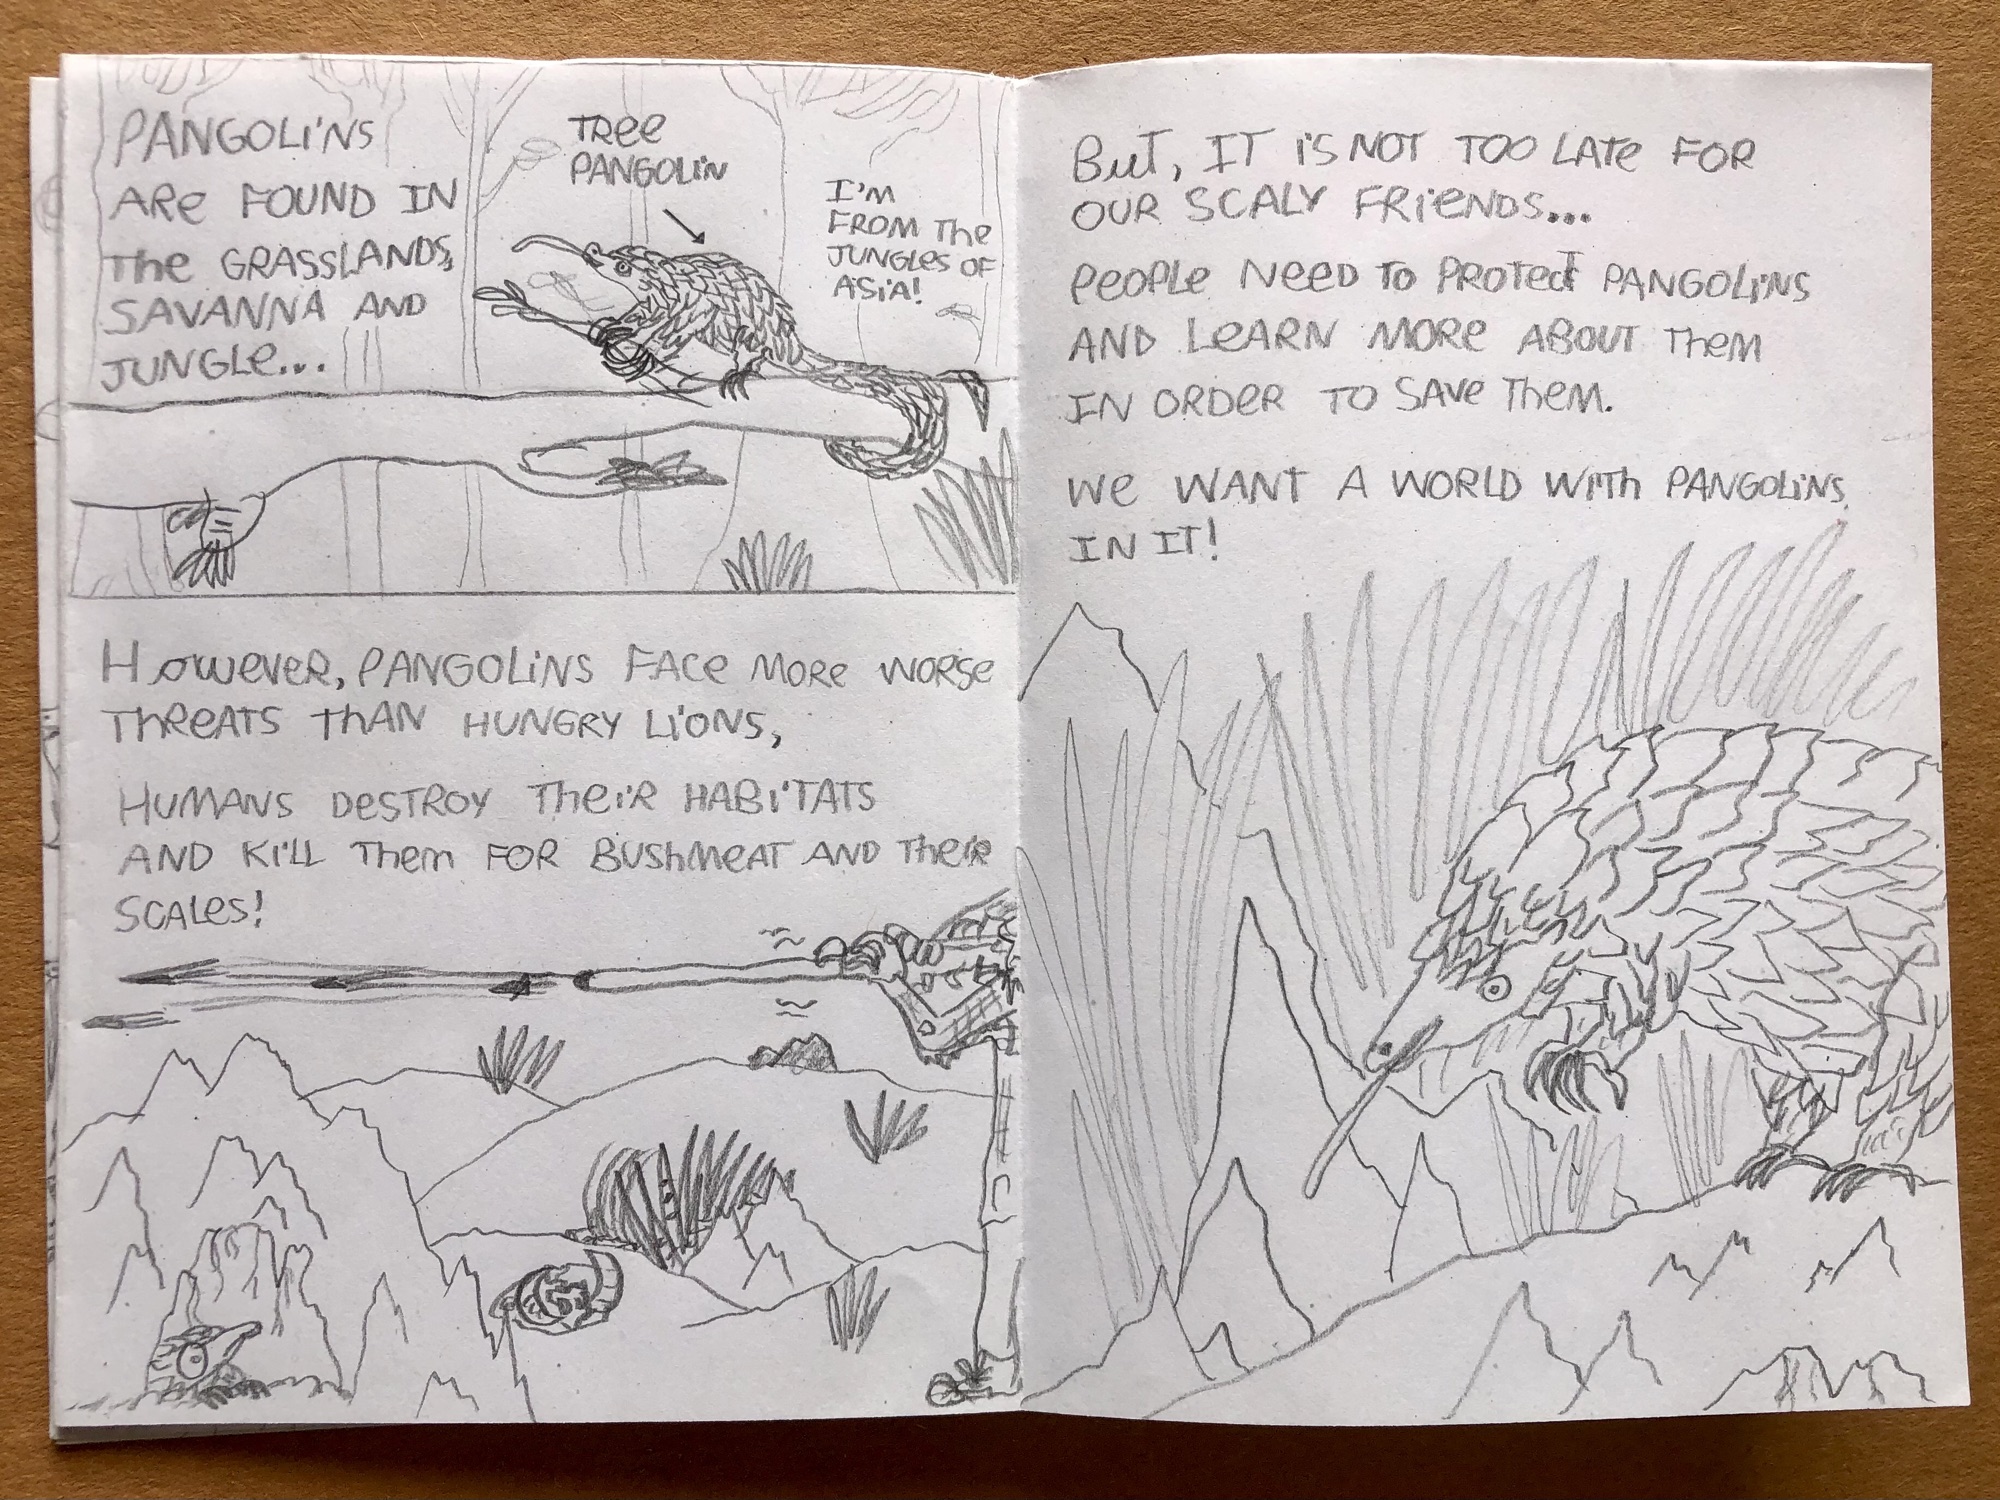 PANGOLINS
ARE FOUND IN
THE GRASSLANDS,
SAVANNA AND
JUNGLE...
TREE
PANGOLIN
I'M
FROM THE
JUNGLES OF
ASIA!
HOWEVER, PANGOLINS FACE MORE WORSE
THREATS THAN HUNGRY LIONS,
HUMANS DESTROY THEIR HABITATS
AND KILL THEM FOR BUSHMEAT AND THEIR
SCALES!
BUT, IT IS NOT TOO LATE FOR
OUR SCALY FRIENDS...
PEOPLE NEED TO PROTECT PANGOLINS
AND LEARN MORE ABOUT THEM
IN ORDER TO SAVE THEM.
WE WANT A WORLD WITH PANGOLINS
IN IT!